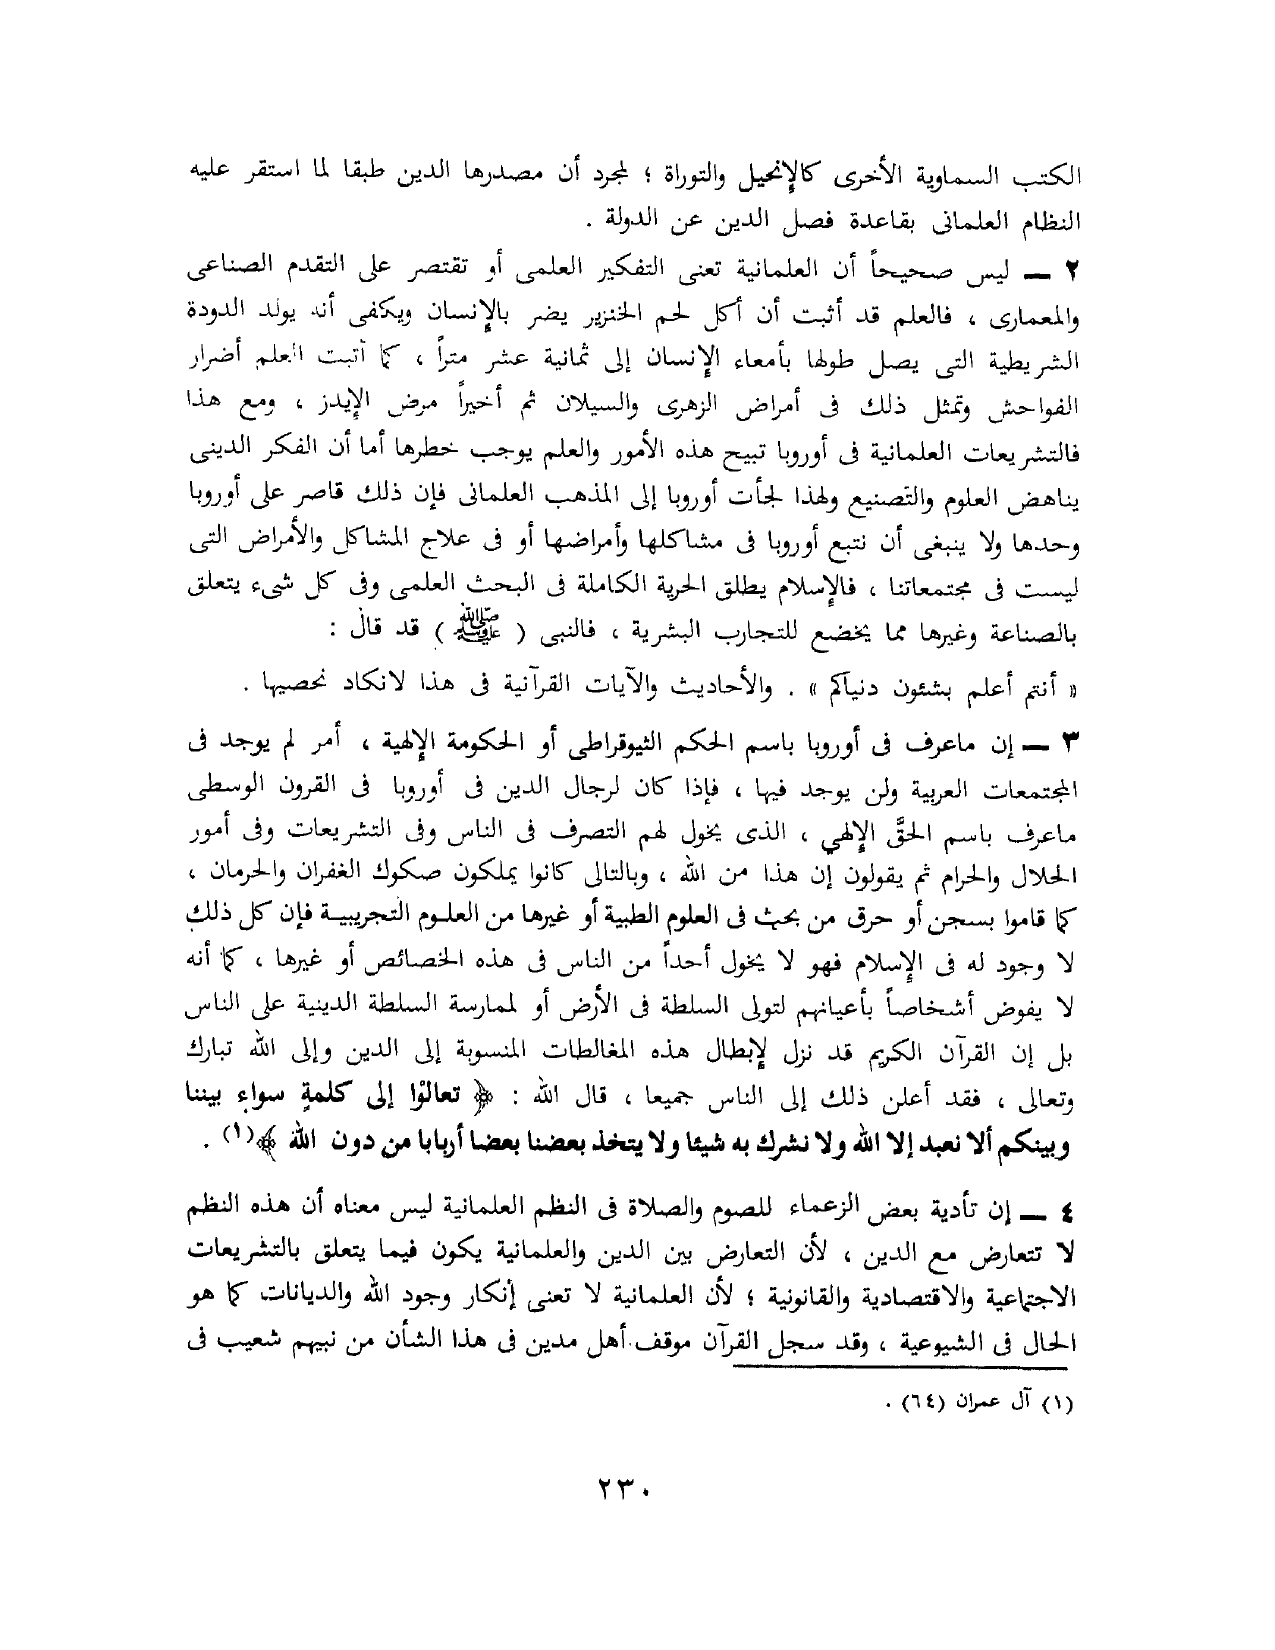 الكتب السماوية الأخرى كالإنجيل والتوراة ؛ لمجرد أن مصدرها الدين طبقا لما استقر عليه
النظام العلمانى بقاعدة فصل الدين عن الدولة .
٢ — ليس صحيحاً أن العلمانية تعنى التفكير العلمى أو تقتصر على التقدم الصناعى
والمعمارى ، فالعلم قد أثبت أن أكل لحم الخنزير يضر بالإنسان ويكفى أنه يولد الدودة
الشريطية التى يصل طولها بأمعاء الإنسان إلى ثمانية عشر متراً ، كما أثبت العلم أضرار
الفواحش وتمثل ذلك فى أمراض الزهرى والسيلان ثم أخيراً مرض الإيدز ، ومع هذا
فالتشريعات العلمانية فى أوروبا تبيح هذه الأمور والعلم يوجب خطرها أما أن الفكر الدينى
يناهض العلوم والتصنيع ولهذا لجأت أوروبا إلى المذهب العلمانى فإن ذلك قاصر على أوروبا
وحدها ولا ينبغى أن نتبع أوروبا فى مشاكلها وأمراضها أو فى علاج المشاكل والأمراض التى
ليست فى مجتمعاتنا ، فالإسلام يطلق الحرية الكاملة فى البحث العلمى وفى كل شىء يتعلق
بالصناعة وغيرها مما يخضع للتجارب البشرية ، فالنبى ( ﷺ ) قد قال :
« أنتم أعلم بشئون دنياكم » . والأحاديث والآيات القرآنية فى هذا لانكاد نحصيها .
٣ — إن ماعرف فى أوروبا باسم الحكم الثيوقراطى أو الحكومة الإلهية ، أمر لم يوجد فى
المجتمعات العربية ولن يوجد فيها ، فإذا كان لرجال الدين فى أوروبا فى القرون الوسطى
ماعرف باسم الحقَّ الإلهي ، الذى يخول لهم التصرف فى الناس وفى التشريعات وفى أمور
الحلال والحرام ثم يقولون إن هذا من الله ، وبالتالى كانوا يملكون صكوك الغفران والحرمان ،
كما قاموا بسجن أو حرق من بحث فى العلوم الطبية أو غيرها من العلوم التجريبية فإن كل ذلك
لا وجود له فى الإسلام فهو لا يخول أحداً من الناس فى هذه الخصائص أو غيرها ، كما أنه
لا يفوض أشخاصاً بأعيانهم لتولى السلطة فى الأرض أو لممارسة السلطة الدينية على الناس
بل إن القرآن الكريم قد نزل لإبطال هذه المغالطات المنسوبة إلى الدين وإلى الله تبارك
وتعالى ، فقد أعلن ذلك إلى الناس جميعا ، قال الله : ﴿ تعالوْا إلى كلمةٍ سواءٍ بيننا
وبينكم ألا نعبد إلا الله ولا نشرك به شيئا ولا يتخذ بعضنا بعضا أربابا من دون الله ﴾(١) .
٤ — إن تأدية بعض الزعماء للصوم والصلاة فى النظم العلمانية ليس معناه أن هذه النظم
لا تتعارض مع الدين ، لأن التعارض بين الدين والعلمانية يكون فيما يتعلق بالتشريعات
الاجتماعية والاقتصادية والقانونية ؛ لأن العلمانية لا تعنى إنكار وجود الله والديانات كما هو
الحال فى الشيوعية ، وقد سجل القرآن موقف أهل مدين فى هذا الشأن من نبيهم شعيب فى
(١) آل عمران (٦٤) .
٢٣٠